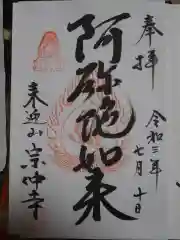 奉拝
令和三年
七月十日
阿弥陀如来
来迎山宗仲寺